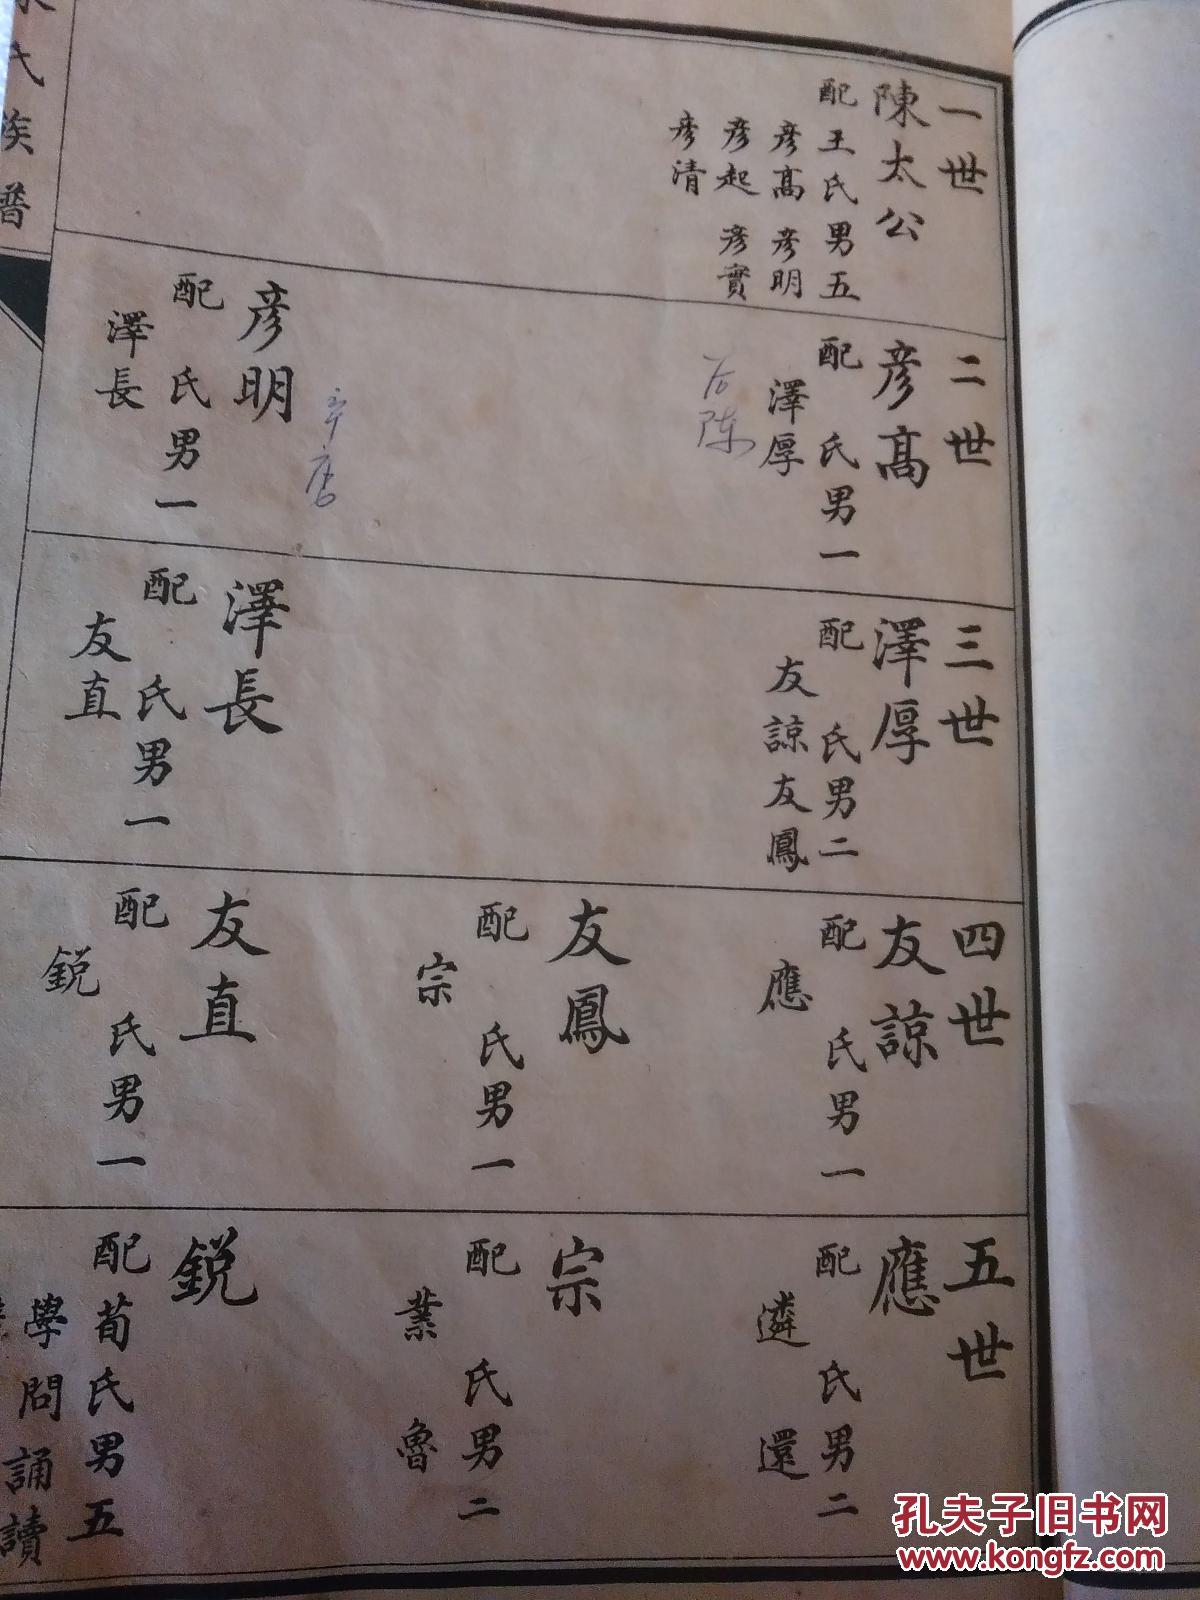 一世
陳太公
配王氏男五
彦高 彦明
彦起 彦實
彦清
二世
彦高
配 氏男一
澤厚
后陈
彦明
配 氏男一
澤長
三世
澤厚
配 氏男二
友諒友鳳
澤長
配 氏男一
友直
四世
友諒
配 氏男一
應
友鳳
配 氏男一
宗
友直
配 氏男一
鋭
五世
應
配 氏男二
遴 還
宗
配 氏男二
業 魯
鋭
配荀氏男五
學問 誦讀
氏族譜
孔夫子旧书网
www.kongfz.com